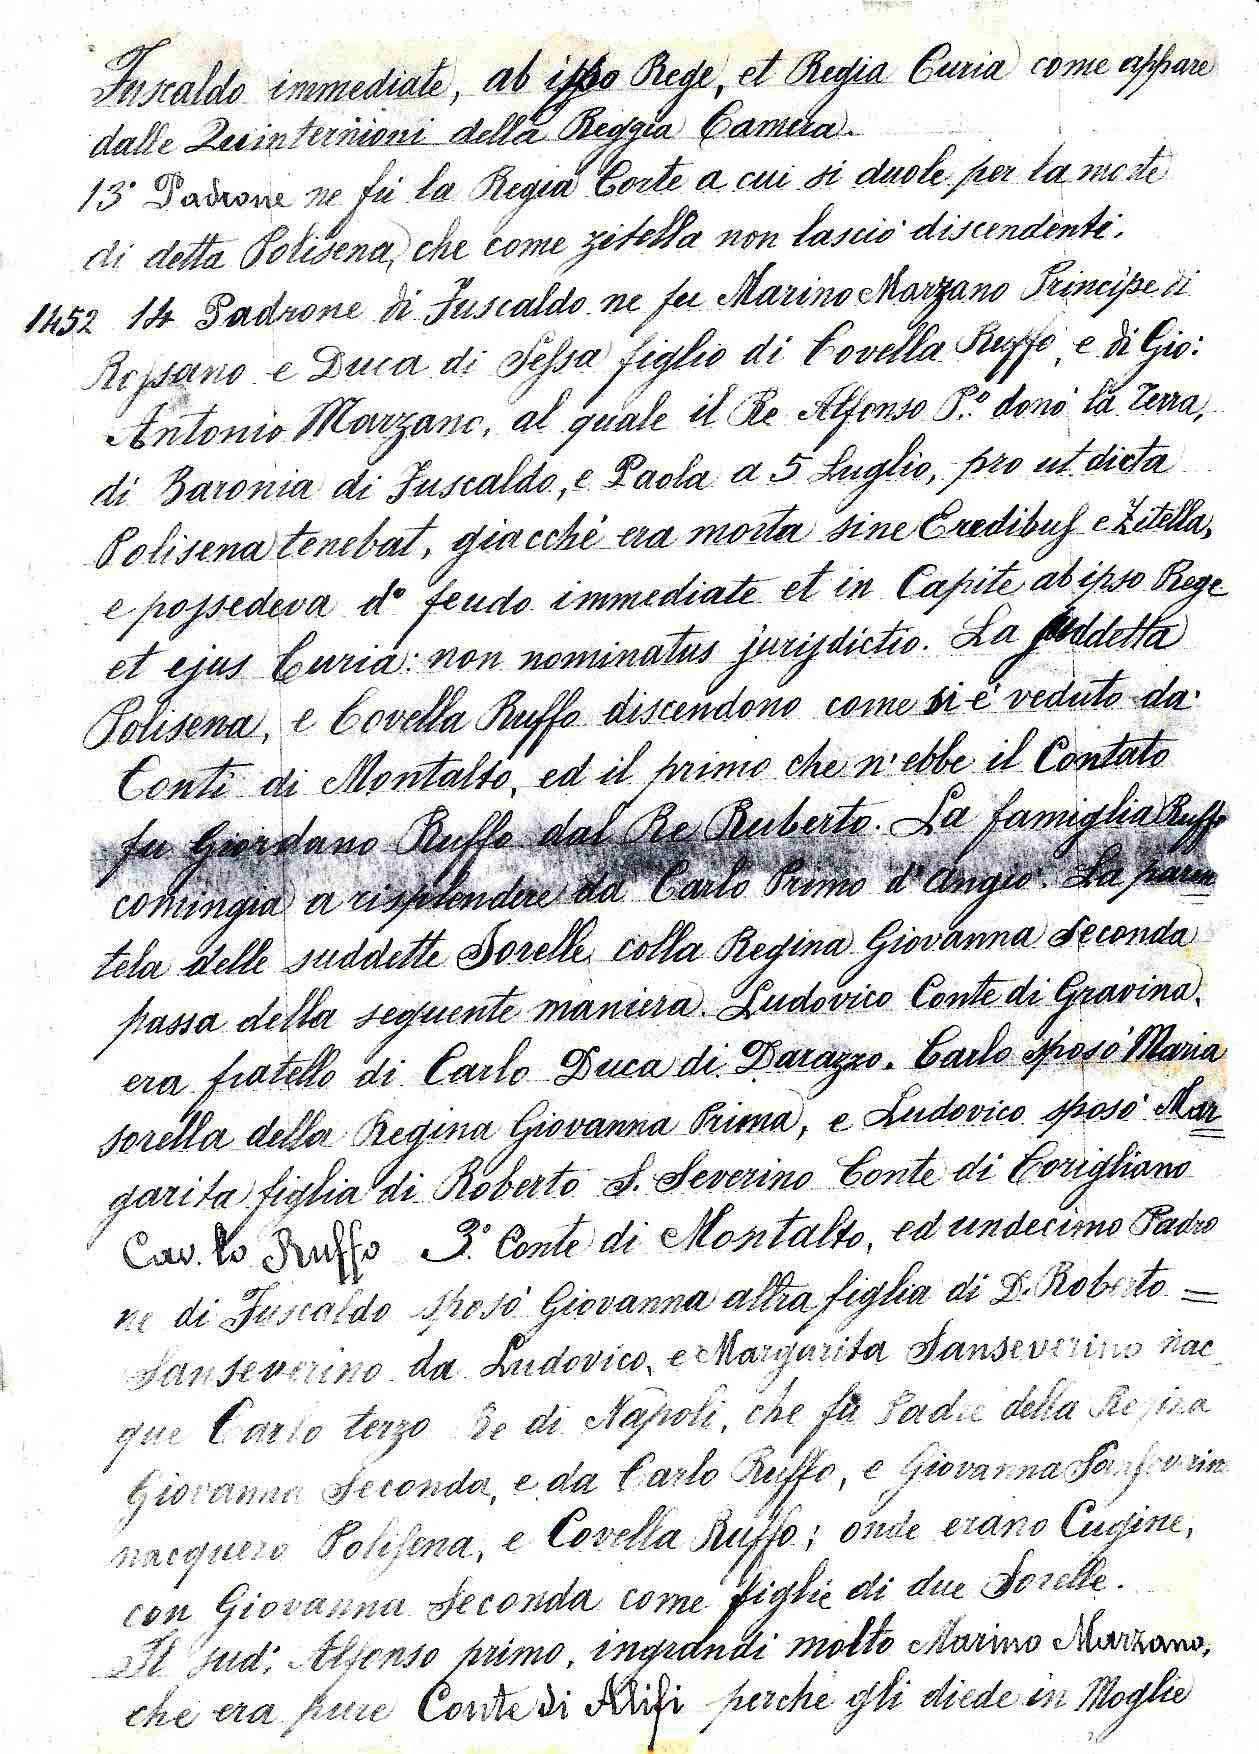 Fuscaldo immediate, ab ipso Rege, et Regia Curia come appare
dalle Quinternioni della Reggia Camera.
13° Padrone ne fù la Regia Corte a cui si duole per la morte
di detta Polisena, che come zitella non lasciò discendenti.
1452 14 Padrone di Fuscaldo ne fu Marino Marzano Principe di
Rossano e Duca di Sessa figlio di Covella Ruffo, e di Gio:
Antonio Marzano, al quale il Re Alfonso P.° donò la Terra,
di Baronia di Fuscaldo, e Paola a 5 Luglio, pro ut dicta
Polisena tenebat, giacché era morta sine Eredibus e Zitella,
e possedeva d° feudo immediate et in Capite ab ipso Rege
et ejus Curia: non nominatus jurisdictio. La suddetta
Polisena, e Covella Ruffo discendono come si é veduto da'
Conti di Montalto, ed il primo che n'ebbe il Contato
fu Giordano Ruffo dal Re Ruberto. La famiglia Ruffo
comingia a risplendere da Carlo Primo d'Angiò. La paren
tela delle suddette Sorelle colla Regina Giovanna Seconda
passa della seguente maniera. Ludovico Conte di Gravina,
era fratello di Carlo Duca di Darazzo. Carlo sposò Maria
sorella della Regina Giovanna Prima, e Ludovico sposò Mar
garita figlia di Roberto S. Severino Conte di Corigliano
Carlo Ruffo 3° Conte di Montalto, ed undecimo Padro
ne di Fuscaldo sposò Giovanna altra figlia di D. Roberto =
Sanseverino da Ludovico, e Margarita Sanseverino nac
que Carlo terzo Re di Napoli, che fù Padre della Regina
Giovanna Seconda, e da Carlo Ruffo, e Giovanna Sanseverino
nacquero Polisena, e Covella Ruffo; onde erano Cugine,
con Giovanna Seconda come figlie di due Sorelle.
Il sud: Alfonso primo, ingrandì molto Marino Marzano,
che era pure Conte di Alifi perchè gli diede in Moglie